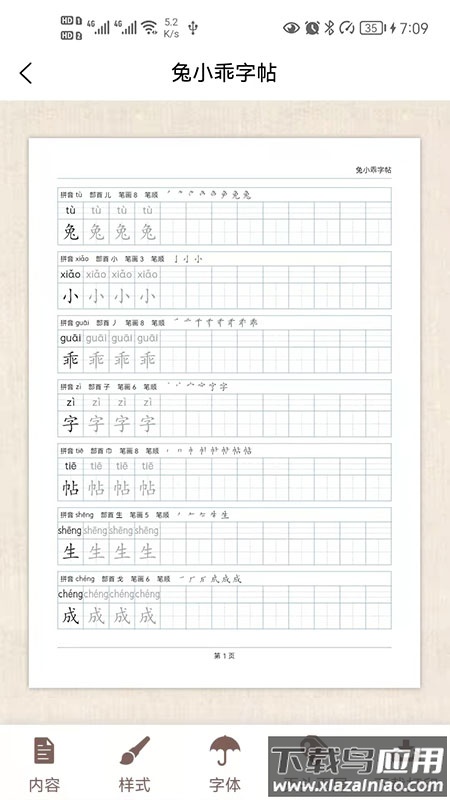 HD 1 HD 2 4G 4G 5.2 K/s 35 7:09
兔小乖字帖
兔小乖字帖
拼音 tù 部首 儿 笔画 8 笔顺
tù tù tù tù
兔 兔 兔 兔
拼音 xiǎo 部首 小 笔画 3 笔顺
xiǎo xiǎo xiǎo xiǎo
小 小 小 小
拼音 guāi 部首 丿 笔画 8 笔顺
guāi guāi guāi guāi
乖 乖 乖 乖
拼音 zì 部首 子 笔画 6 笔顺
zì zì zì zì
字 字 字 字
拼音 tiē 部首 巾 笔画 8 笔顺
tiē tiē tiē tiē
帖 帖 帖 帖
拼音 shēng 部首 生 笔画 5 笔顺
shēng shēng shēng shēng
生 生 生 生
拼音 chéng 部首 戈 笔画 6 笔顺
chéng chéng chéng chéng
成 成 成 成
第 1 页
内容 样式 字体
下载鸟应用
www.xiazainiao.com